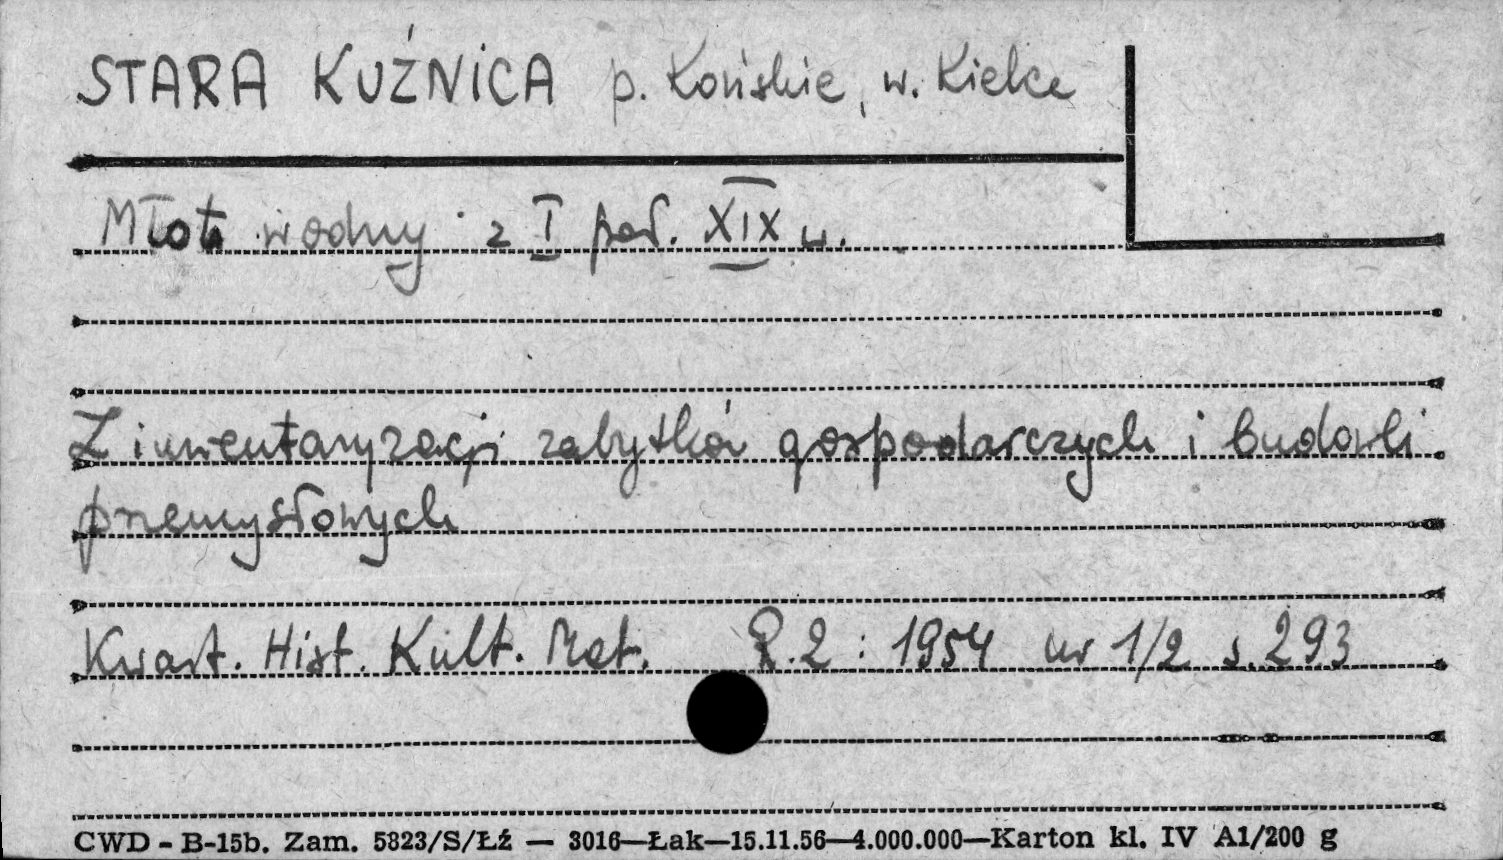 STARA KUŹNICA p. Końskie, w. Kielce
Młot wodny z I poł. XIX w.
Z inwentaryzacji zabytków gospodarczych i budowli
przemysłowych
Kwart. Hist. Kult. Mat. R.2 : 1954 nr 1/2 s. 293
CWD - B-15b. Zam. 5823/S/Łź — 3016—Łak—15.11.56—4.000.000—Karton kl. IV A1/200 g